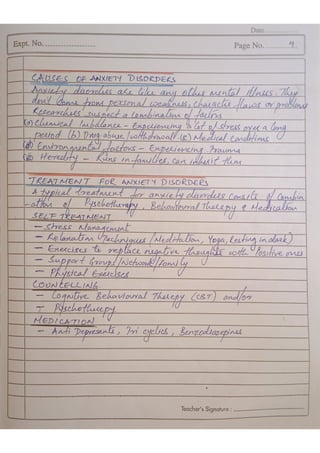 Date
Expt. No.
Page No. 9
CAUSES OF ANXIETY DISORDERS
Anxiety disorders are like any other mental illness. They
don't come from personal weakness, character flaws or problems
Researchers suspect a combination of factors
(a) Chemical Imbalance - Experiencing a lot of stress over a long
period (b) Drug abuse/withdrawal (c) Medical conditions
(d) Environmental factors - Experiencing trauma
(e) Heredity - Runs in families, can inherit them
TREATMENT FOR ANXIETY DISORDERS
A typical treatment for anxiety disorders consists of combin
ation of Pyschotherapy, Behavioural Therapy & Medication
SELF TREATMENT
- Stress Management
- Relaxation Techniques (Meditation, Yoga, Resting in dark)
- Exercises to replace negative thoughts with Positive ones
- Support Group/Network/Family
- Physical Exercises
COUNCELLING
- Cognitive Behavioural Therapy (CBT) and/or
- Pyschotherapy
MEDICATION
- Anti Depresants, Tri cyclics, Benzodiazepines
Teacher's Signature :